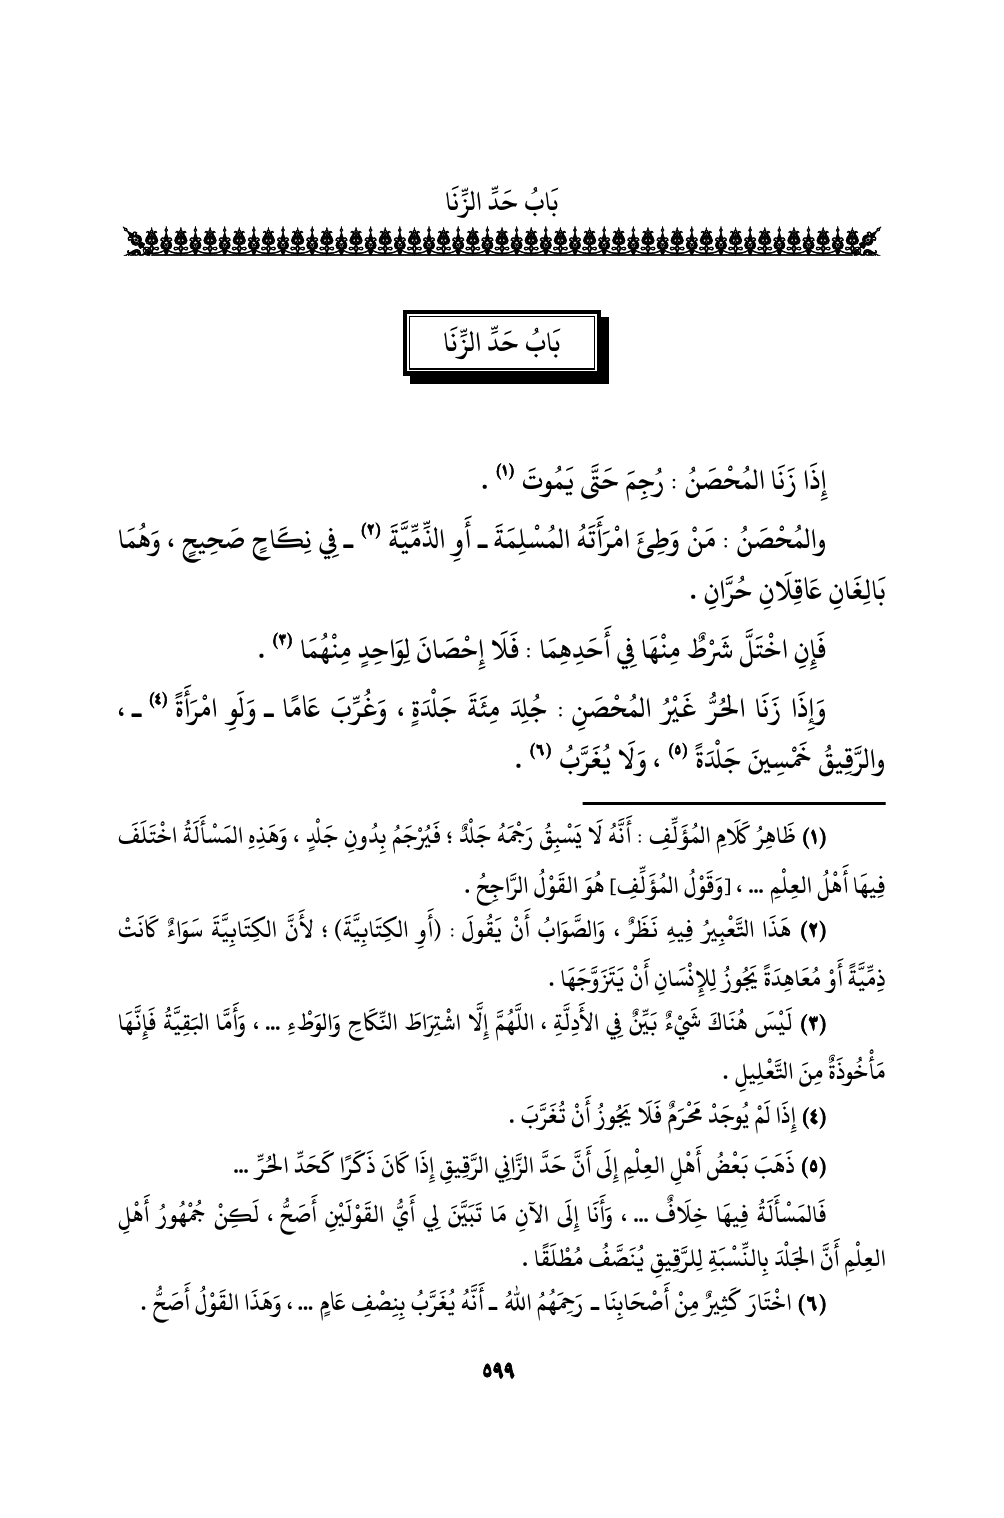 بَابُ حَدِّ الزِّنَا
بَابُ حَدِّ الزِّنَا
إِذَا زَنَا المُحْصَنُ : رُجِمَ حَتَّى يَمُوتَ (١) .
والمُحْصَنُ : مَنْ وَطِئَ امْرَأَتَهُ المُسْلِمَةَ ـ أَوِ الذِّمِّيَّةَ (٢) ـ فِي نِكَاحٍ صَحِيحٍ ، وَهُمَا
بَالِغَانِ عَاقِلَانِ حُرَّانِ .
فَإِنِ اخْتَلَّ شَرْطٌ مِنْهَا فِي أَحَدِهِمَا : فَلَا إِحْصَانَ لِوَاحِدٍ مِنْهُمَا (٣) .
وَإِذَا زَنَا الحُرُّ غَيْرُ المُحْصَنِ : جُلِدَ مِئَةَ جَلْدَةٍ ، وَغُرِّبَ عَامًا ـ وَلَوِ امْرَأَةً (٤) ـ ،
والرَّقِيقُ خَمْسِينَ جَلْدَةً (٥) ، وَلَا يُغَرَّبُ (٦) .
(١) ظَاهِرُ كَلَامِ المُؤَلِّفِ : أَنَّهُ لَا يَسْبِقُ رَجْمَهُ جَلْدٌ ؛ فَيُرْجَمُ بِدُونِ جَلْدٍ ، وَهَذِهِ المَسْأَلَةُ اخْتَلَفَ
فِيهَا أَهْلُ العِلْمِ ... ، [وَقَوْلُ المُؤَلِّفِ] هُوَ القَوْلُ الرَّاجِحُ .
(٢) هَذَا التَّعْبِيرُ فِيهِ نَظَرٌ ، وَالصَّوَابُ أَنْ يَقُولَ : (أَوِ الكِتَابِيَّةَ) ؛ لأَنَّ الكِتَابِيَّةَ سَوَاءٌ كَانَتْ
ذِمِّيَّةً أَوْ مُعَاهِدَةً يَجُوزُ لِلإِنْسَانِ أَنْ يَتَزَوَّجَهَا .
(٣) لَيْسَ هُنَاكَ شَيْءٌ بَيِّنٌ فِي الأَدِلَّةِ ، اللَّهُمَّ إِلَّا اشْتِرَاطَ النِّكَاحِ وَالوَطْءِ ... ، وَأَمَّا البَقِيَّةُ فَإِنَّهَا
مَأْخُوذَةٌ مِنَ التَّعْلِيلِ .
(٤) إِذَا لَمْ يُوجَدْ مَحْرَمٌ فَلَا يَجُوزُ أَنْ تُغَرَّبَ .
(٥) ذَهَبَ بَعْضُ أَهْلِ العِلْمِ إِلَى أَنَّ حَدَّ الزَّانِي الرَّقِيقِ إِذَا كَانَ ذَكَرًا كَحَدِّ الحُرِّ ...
فَالمَسْأَلَةُ فِيهَا خِلَافٌ ... ، وَأَنَا إِلَى الآنِ مَا تَبَيَّنَ لِي أَيُّ القَوْلَيْنِ أَصَحُّ ، لَكِنْ جُمْهُورُ أَهْلِ
العِلْمِ أَنَّ الجَلْدَ بِالنِّسْبَةِ لِلرَّقِيقِ يُنَصَّفُ مُطْلَقًا .
(٦) اخْتَارَ كَثِيرٌ مِنْ أَصْحَابِنَا ـ رَحِمَهُمُ اللهُ ـ أَنَّهُ يُغَرَّبُ بِنِصْفِ عَامٍ ... ، وَهَذَا القَوْلُ أَصَحُّ .
٥٩٩